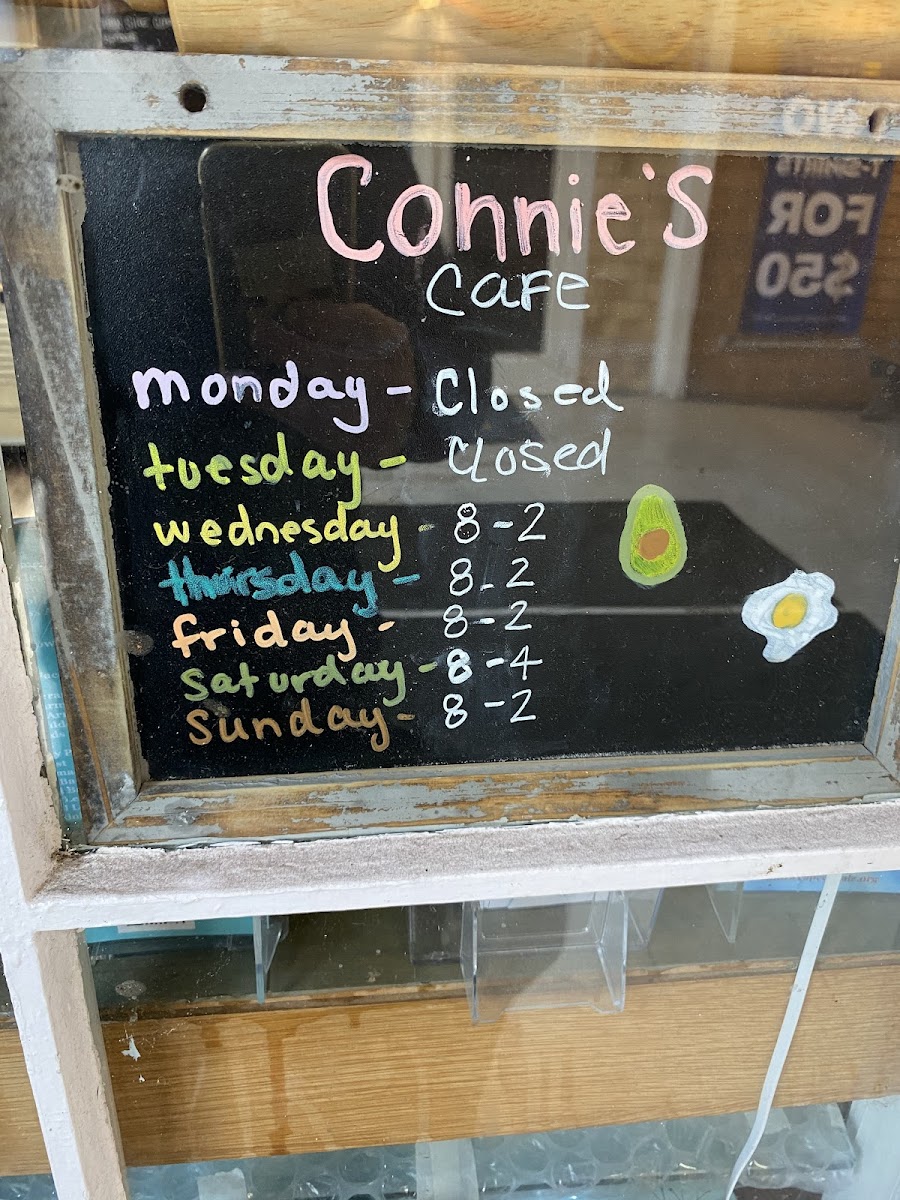 Connie's
Cafe
monday - Closed
tuesday - Closed
wednesday - 8-2
thursday - 8-2
friday - 8-2
saturday - 8-4
sunday - 8-2
T-SHIRTS
FOR
$50